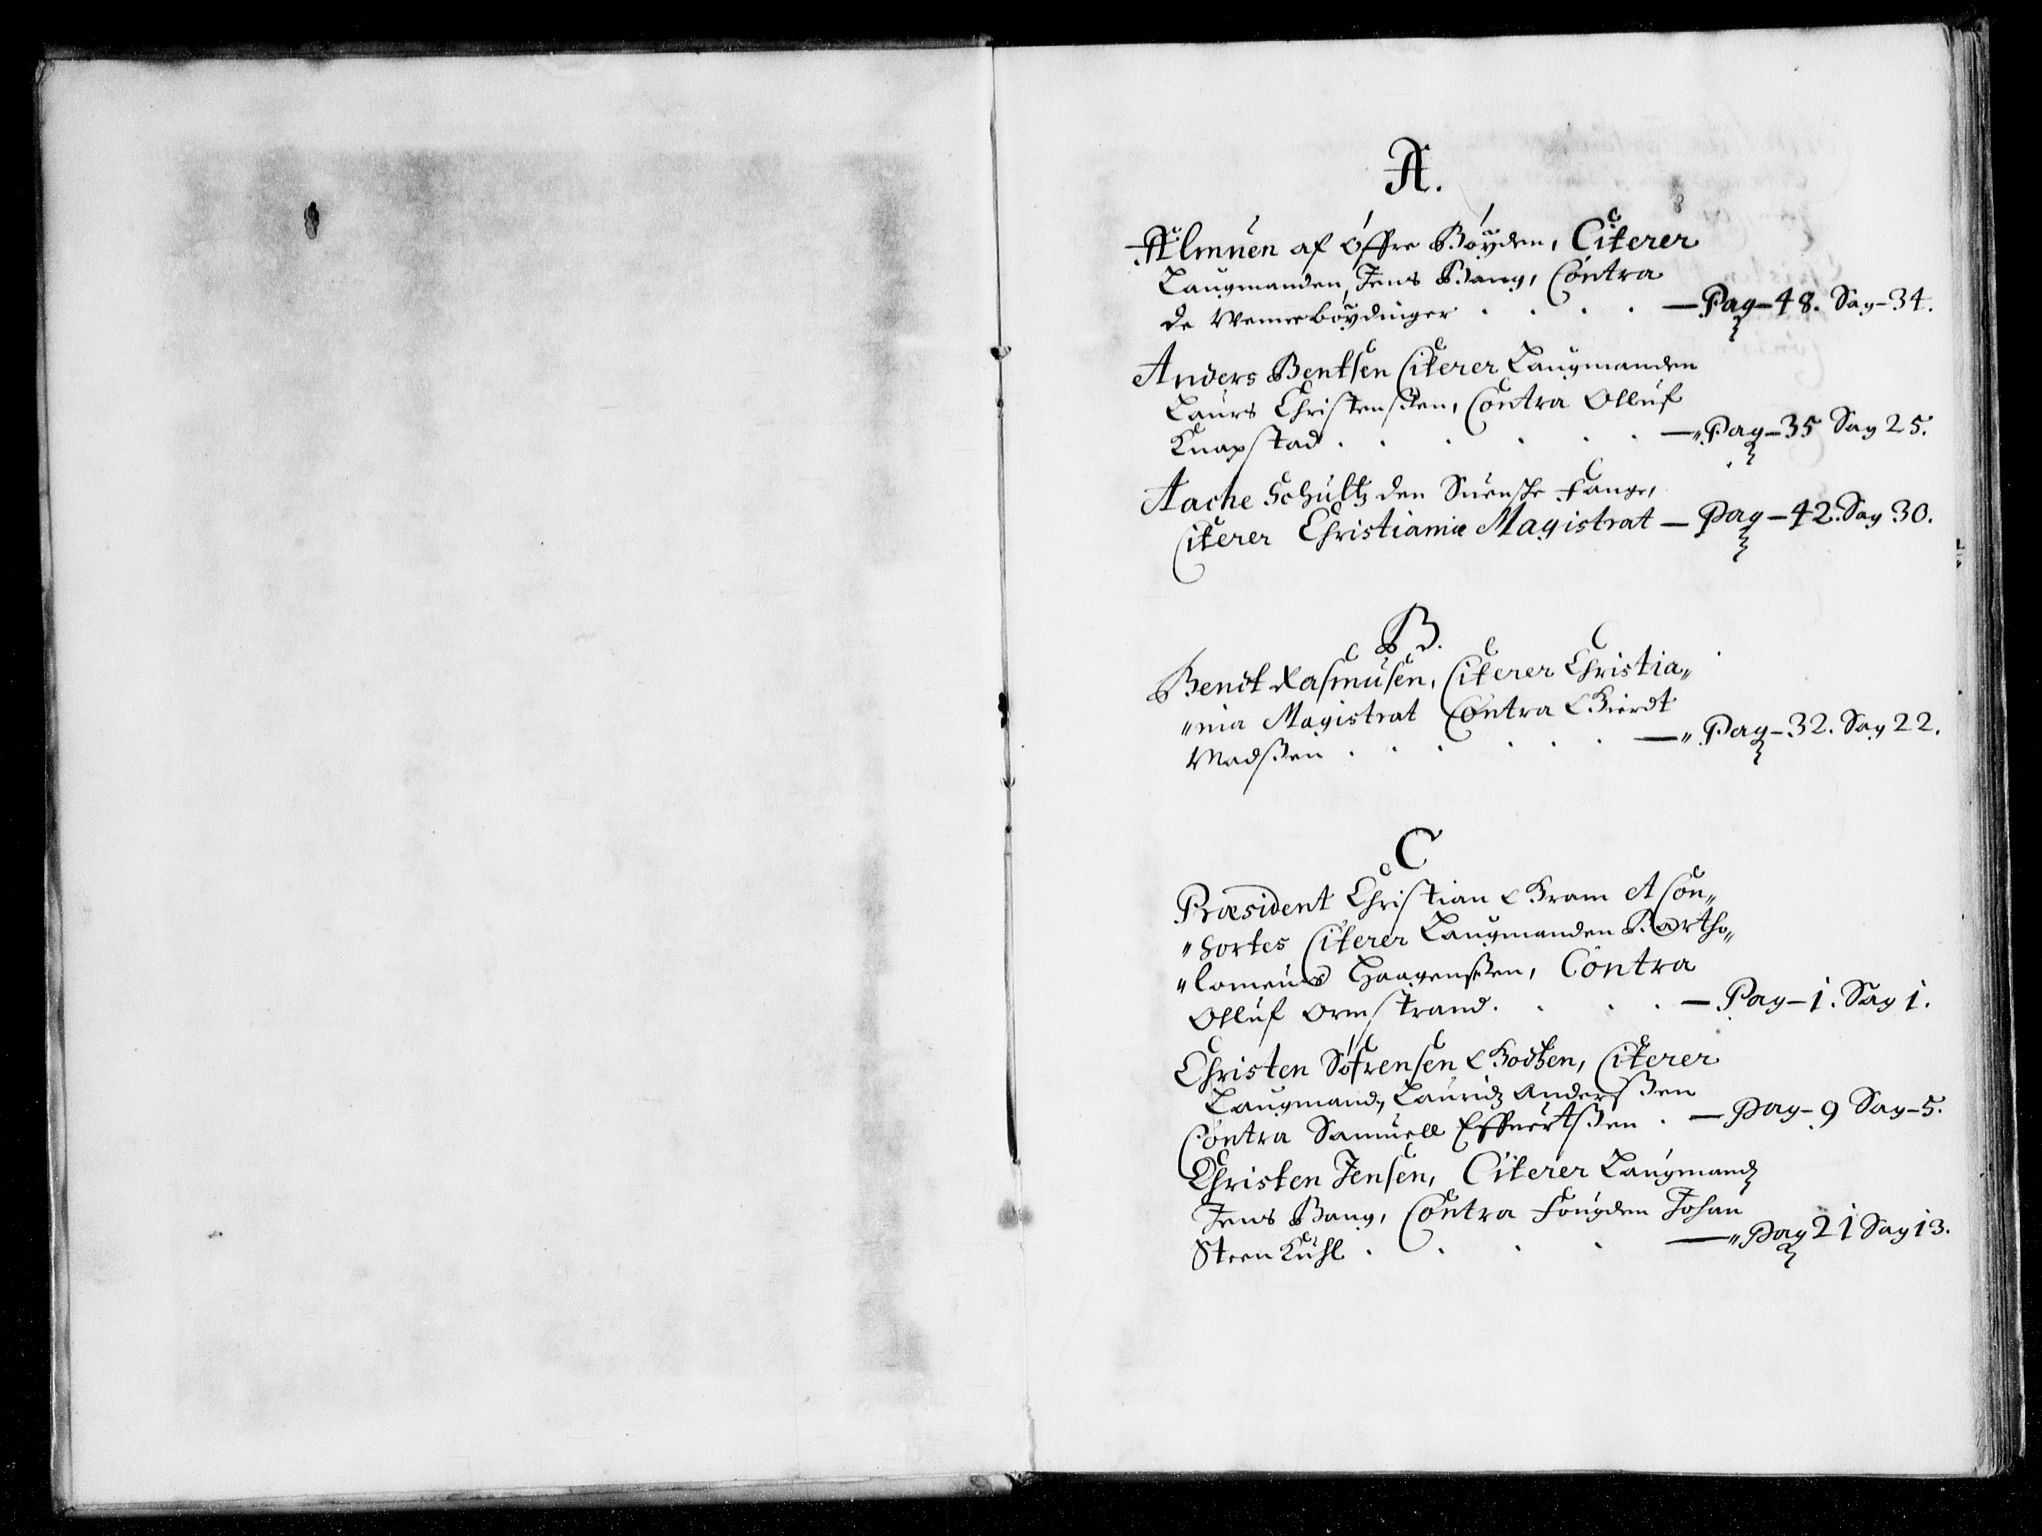 A.
Almuen af Øffre Bøyden, Citerer
Laugmanden, Jens Bang, Contra
de Wennebøydinger . . . . — Pag – 48. Sag – 34.
Anders Bentsen Citerer Laugmanden
Laurs Christensen, Contra Olluf
Knapstad . . . . . . —„ Pag – 35 Sag 25.
Aache Schultz den Suenske Fange,
Citerer Christianiæ Magistrat — Pag – 42. Sag 30.
B.
Bendt Rasmusen, Citerer Christia„
„nia Magistrat Contra Gierdt
Madsßen . . . . . . —„ Pag – 32. Sag 22.
C
Præsident Christian Gram et Con„
„sortes Citerer Laugmanden Bartho„
„lomeus Haagensßen, Contra
Olluf Ormstrand. . . . — Pag – 1. Sag 1.
Christen Søfrensen Godtzen, Citerer
Laugmand, Lauridz Andersßen
Contra Samuell Effuertsßen . — Pag – 9 Sag – 5.
Christen Jensen, Citerer Laugmand
Jens Bang, Contra Fougden Johan
Steen Kuhl . . . . —„ Pag 21 Sag 13.